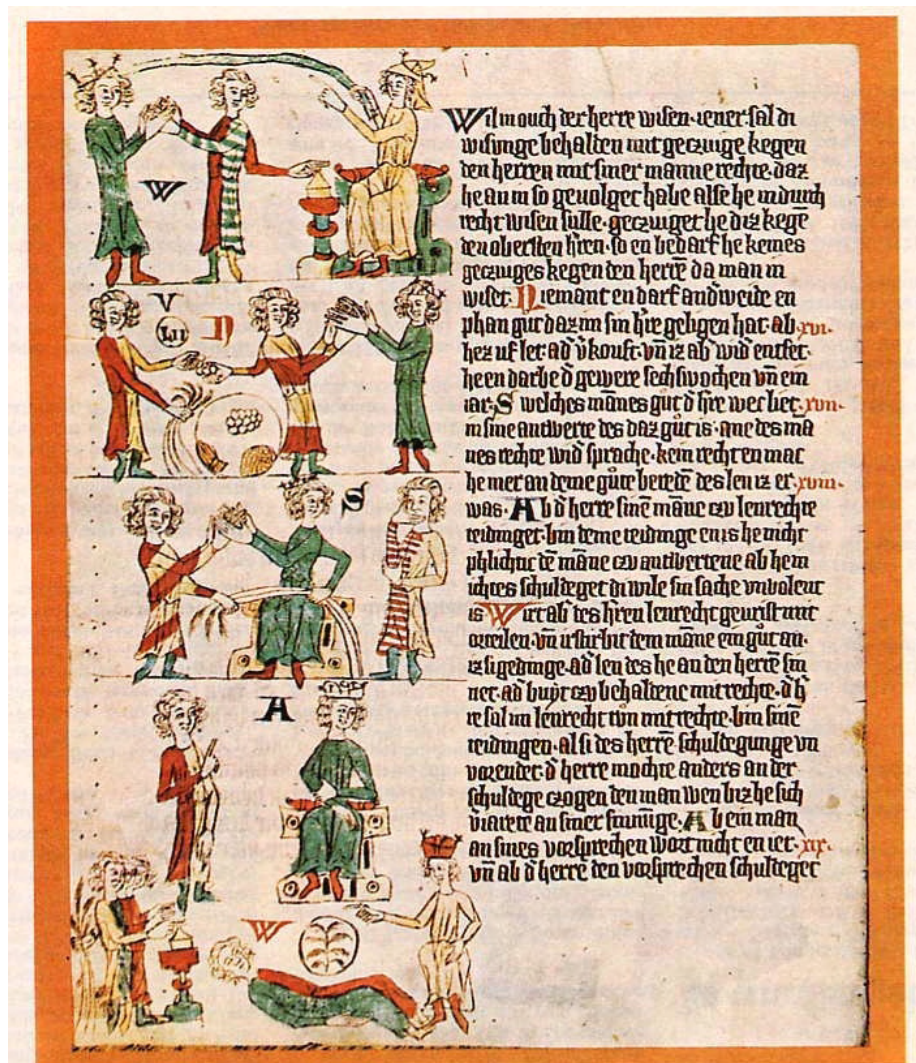 W
V
LII
N
S
A
W
Wil in ouch der herre wisen · iener sal di
wisunge behalden mit geczuge kegen
den herren mit siner manne rechte · daz
he an in so gevolget habe alse he in durch
recht wisen sulle · geczuget he diz kegē
den obersten h̄ren · so en bedarf he keines
geczuges kegen den herrē da man in
wiset · Niemant en darf and̄weide en
phan gut daz im sin h̄re geligen hat · ab · xvi ·
hez uf let · ad̄ v̄kouft · vn̄ iz ab wid̄ entfet ·
he en darbe d̄ gewere sechs wochen vn̄ ein
iar · S welches mānes gůt d̄ h̄re wec liet · xvii ·
in sine antwerte des daz gůt is · ane des mā
nes rechte wid̄ sprache · kein recht en mac
he mer an deme gůte beredē des len iz er · xviii ·
was · Ab d̄ herre sinē māne czu lenrechte
teidinget · bin deme teidinge en is he nicht
phlichtic dē māne czu antwertene ab he in
ichtes schuldeget di wile sin sache unvolent
is Wirt ab des h̄ren lenrecht gevrist mit
orteilen · vn̄ irstirbit dem māne ein gůt an ·
iz si gedinge · ad̄ len des he an den herrē sin
net · ad̄ butit czu behaldene mit rechte · d̄ h̄
re sal im lenrecht tůn mit rechte · bin sinē
teidingen · al si des herrē schuldegunge un
vorendet · d̄ herre mochte anders an der
schuldege czogen den man wen biz he sich
v̄iarete an siner sinnūge · Ab ein man
an sines vorsprechen wort nicht en iet · xix ·
vn̄ ab d̄ herre den vorsprechen schuldeget